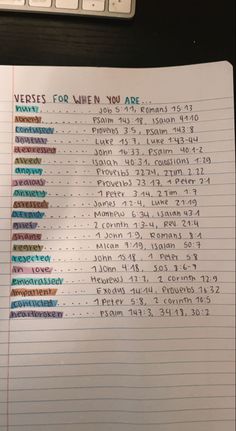 VERSES FOR WHEN YOU ARE...
hurt ......... Job 5:11, Romans 15:13
lonely ......... Psalm 145:18, Isaiah 41:10
confused ......... Proverbs 3:5, Psalm 143:8
doubtful ......... Luke 1:37, Luke 1:43-44
depressed ......... John 16:33, Psalm 40:1-2
tired ......... Isaiah 40:31, colossians 1:29
angry ......... Proverbs 22:24, 2Tim 2:22
jealous ......... Proverbs 23:17, 1 Peter 2:1
anxiety ......... 1 Peter 3:14, 2Tim 1:7
stressed ......... James 1:2-4, Luke 21:19
afraid ......... Matthew 6:34, Isaiah 43:1
grief ......... 2 corinth 1:3-4, Rev 21:4
shame ......... 1 John 1:9, Romans 8:1
regret ......... Micah 7:19, Isaiah 50:7
rejected ......... John 15:18, 1 Peter 5:8
in love ......... 1 John 4:18, SOS 8:6-7
embarrassed ......... Hebrews 12:2, 2 corinth 12:9
impatient ......... Exodus 14:14, Proverbs 16:32
conflicted ......... 1 Peter 5:8, 2 corinth 10:5
heartbroken ......... psalm 147:3, 34:18, 30:2